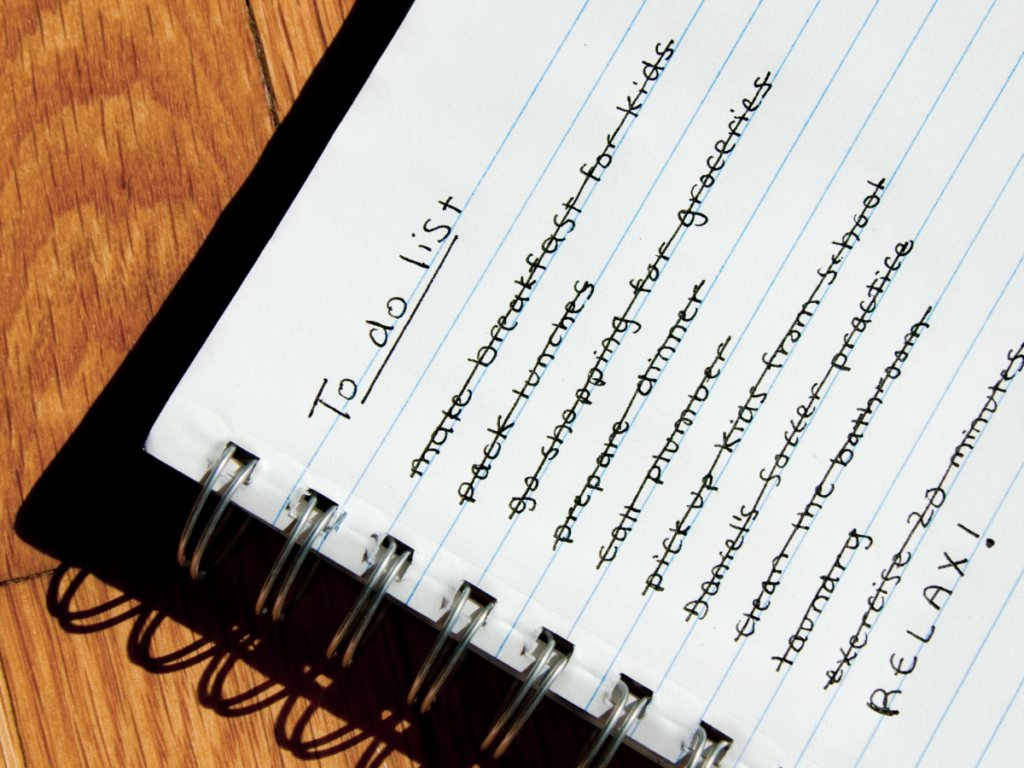 To do list
make breakfast for kids
pack lunches
go shopping for groceries
prepare dinner
call plumber
pick up kids from school
Daniel's soccer practice
clean the bathroom
laundry
exercise 20 minutes
RELAX!